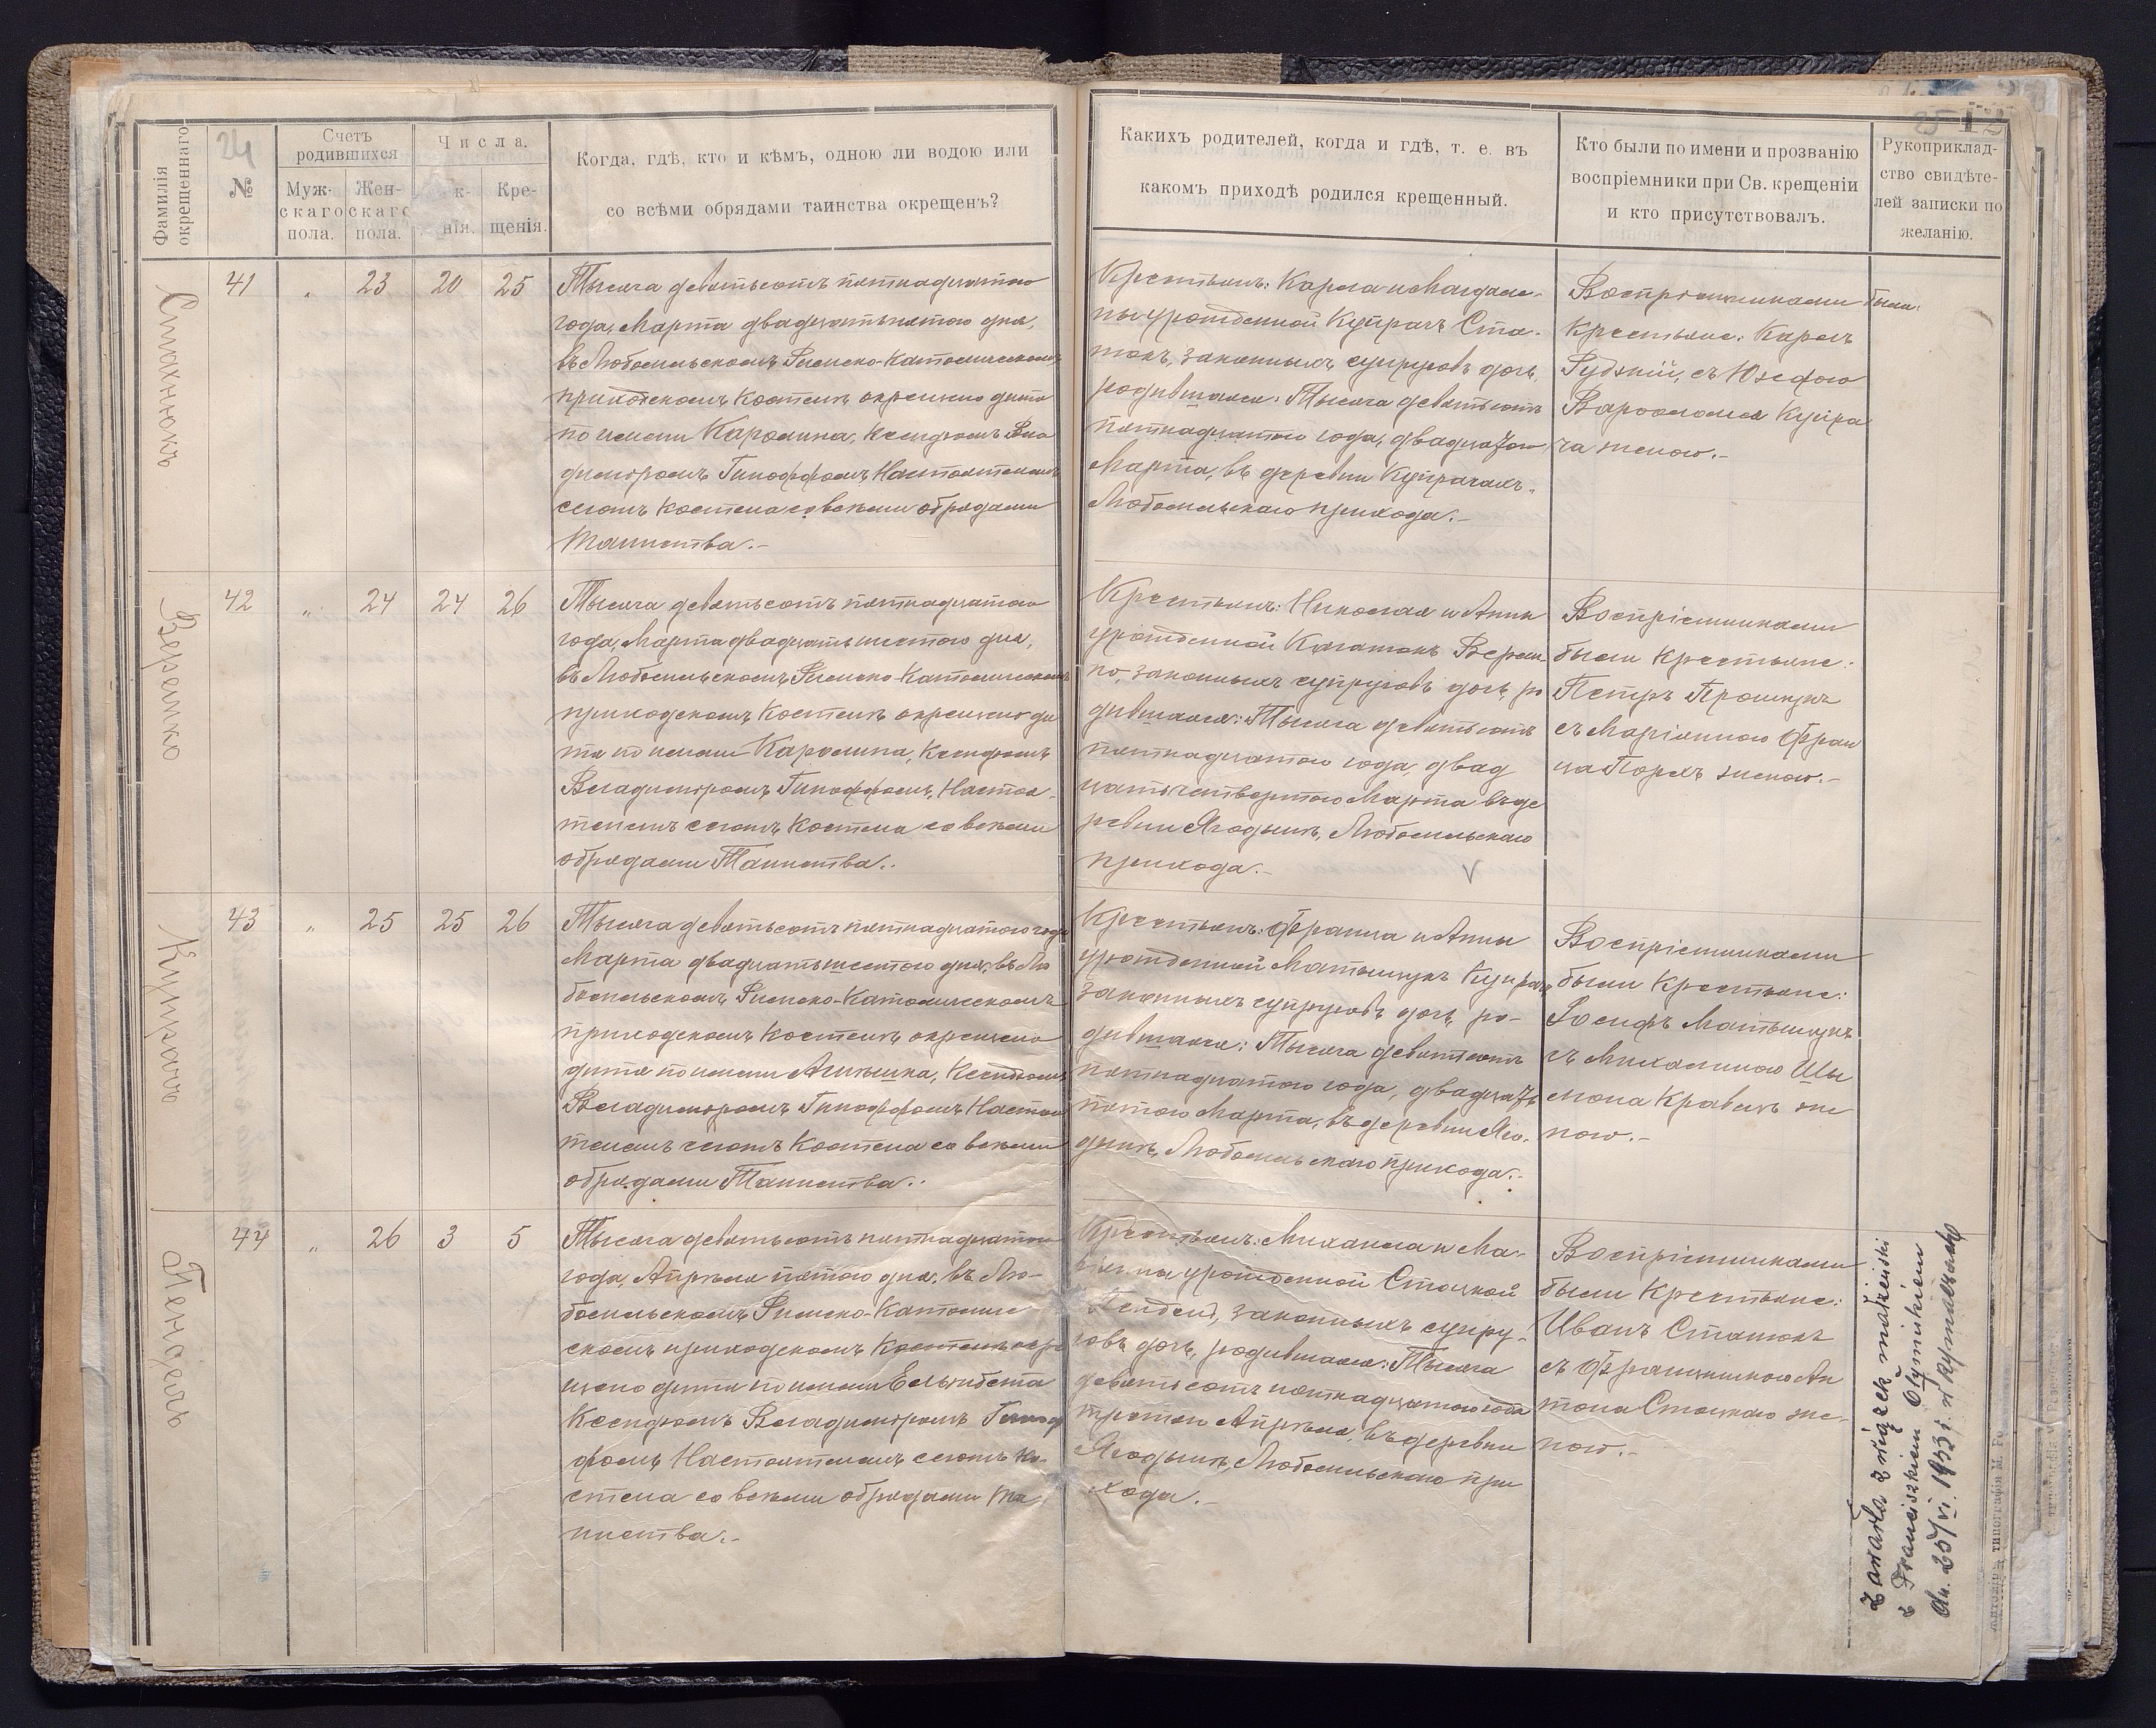 24
25 12
Фамилія окрещеннаго
№
Счетъ родившихся
Муж-
скаго
пола.
Жен-
скаго
пола.
Числа.
к-
нія.
Кре-
щенія.
Когда, гдѣ, кто и кѣмъ, одною ли водою или
со всѣми обрядами таинства окрещенъ?
Какихъ родителей, когда и гдѣ, т. е. въ
какомъ приходѣ родился крещенный.
Кто были по имени и прозванію
воспріемники при Св. крещеніи
и кто присутствовалъ.
Рукоприклад-
ство свидѣте-
лей записки по
желанію.
41 „ 23 20 25
Тысяча девятьсотъ пятнадцатаго
года, Марта двадцатьпятаго дня,
въ Любомльскомъ Римско-Католическомъ
приходскомъ Костелѣ окрещено дитя
по имени Каролина, Ксендзомъ Вла
димiромъ Гиноффомъ, Настоятелемъ
сегожъ Костела со всѣми обрядами
Таинства.-
Крестьянъ: Карла и Магдале-
ны урожденной Купрачъ Ста-
законныхъ супруговъ дочь,
родившаяся: Тысяча девятьсотъ
пятнадцатаго года, двадцатаго
Марта, въ деревни Купрачахъ,
Любомльскаго прихода.-
Воспріемниками были:
Крестьяне: Кароль
Рудзкій, съ Юзефою
Варфоломея Купра
ча женою.-
Верешко
42 „ 24 24 26
Тысяча девятьсотъ пятнадцатаго
года, Марта двадцатьшестаго дня,
въ Любомльскомъ Римско-Католическомъ
приходскомъ Костелѣ окрещено ди
тя по имени Каролина, Ксендзомъ
Владимiромъ Гиноффомъ, Настоя-
телемъ сегожъ Костела со всѣми
обрядами Таинства.-
Крестьянъ: Николая и Анны
урожденной Верем
законныхъ супруговъ дочь, ро
дившаяся: Тысяча девятьсотъ
пятнадцатаго года, двад
цатьчетвертаго Марта въ де
ревни Ягодынѣ, Любомльскаго
прихода.-
Воспріемниками
были Крестьяне:
Петръ
съ Маріанною Фран
ца женою.-
Купрачъ
43 „ 25 25 26
Тысяча девятьсотъ пятнадцатаго года
Марта двадцатьшестаго дня, въ Лю
бомльскомъ Римско-Католическомъ
приходскомъ Костелѣ окрещено
дитя по имени Агнѣшка, Ксендзомъ
Владимiромъ Гиноффомъ, Настоя
телемъ сегожъ Костела со всѣми
обрядами Таинства.-
Крестьянъ: Франца и Анны
урожденной Матыщукъ Купрачъ
законныхъ супруговъ дочь, ро-
дившаяся: Тысяча девятьсотъ
пятнадцатаго года, двадцать
пятаго Марта, въ деревни Яго-
дынѣ, Любомльскаго прихода.-
Воспріемниками
были Крестьяне:
Іосифъ Матыщукъ
съ Михалиною Шы
мона Кравецъ же
ною.-
Пендель
44 „ 26 3 5
Тысяча девятьсотъ пятнадцатаго
года, Апрѣля пятаго дня, въ Лю-
бомльскомъ Римско-Католиче
скомъ приходскомъ Костелѣ окре
щено дитя по имени Ельжбета
Ксендзомъ Владимiромъ Гиноф
фомъ Настоятелемъ сегожъ Ко-
стела со всѣми обрядами Та
инства.-
Крестьянъ: Михаила и Ма-
ріанны урожденной Стоцкой
Пендель, законныхъ супру-
говъ дочь, родившаяся: Тысяча
девятьсотъ пятнадцатаго года
третяго Апрѣля, въ деревни
Ягодынѣ, Любомльскаго при
хода.-
Воспріемниками
были Крестьяне:
Иванъ Стацюкъ
съ Францишкою Ан
тона Стоцкаго же-
ною.-
Zawarła związek małżeński
z Franciszkiem
dn. 25/VI. 193